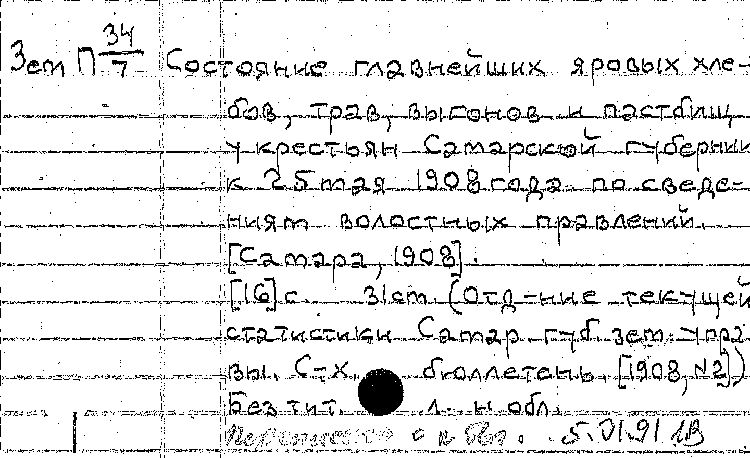 Зем П 34/7 Состояние главнейших яровых хле-
бов, трав, выгонов и пастбищ
у крестьян Самарской губернии
к 25 мая 1908 года по сведе-
ниям волостных правлений.
[Самара, 1908].
[16] с. 31 см (Отд-ние текущей
статистики Самар губ. зем. упра
вы. С-х. бюллетень. [1908, №2])
Без тит. л. и обл.
5.VI.91